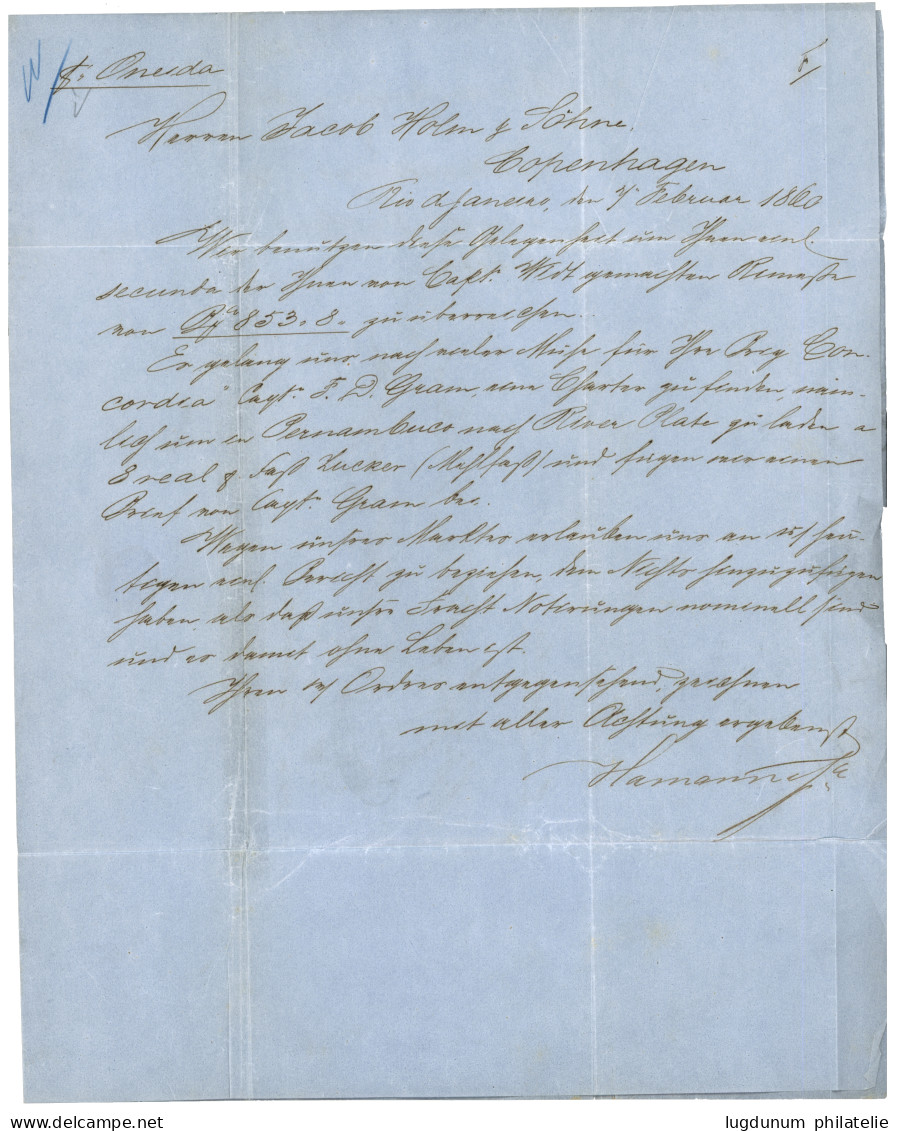 pr Oneida
Herren Jacob Holm & Söhne.
Copenhagen
Rio de Janeiro, den 7/ Februar 1860
Wir benutzen diese Gelegenheit um Ihnen einl.
secunda der Ihnen von Capt. Widt gemachten Rimesse
von 853.8. zu überreichen.
Es gelang uns nach vieler Mühe für Ihre Brig Con-
cordia" Captn. F. D. Gram, eine Charter zu finden, näm-
lich um in Pernambuco nach River Plate zu laden a
8 real p. Faß Zucker (Mehlfaß) und fügen wir einen
Brief von Captn. Gram bei.
Wegen unsres Marktes erlauben uns an us/ heu-
tigen einl. Bericht zu beziehen, dem Nichts hinzuzufügen
haben, als daß unsre Fracht Notirungen nominell sind
und es damit ohne Leben ist.
Ihren Ordres entgegensehend, zeichnen
mit aller Achtung ergebenst
Hamann & Co
delcampe.net
lugdunum philatelie